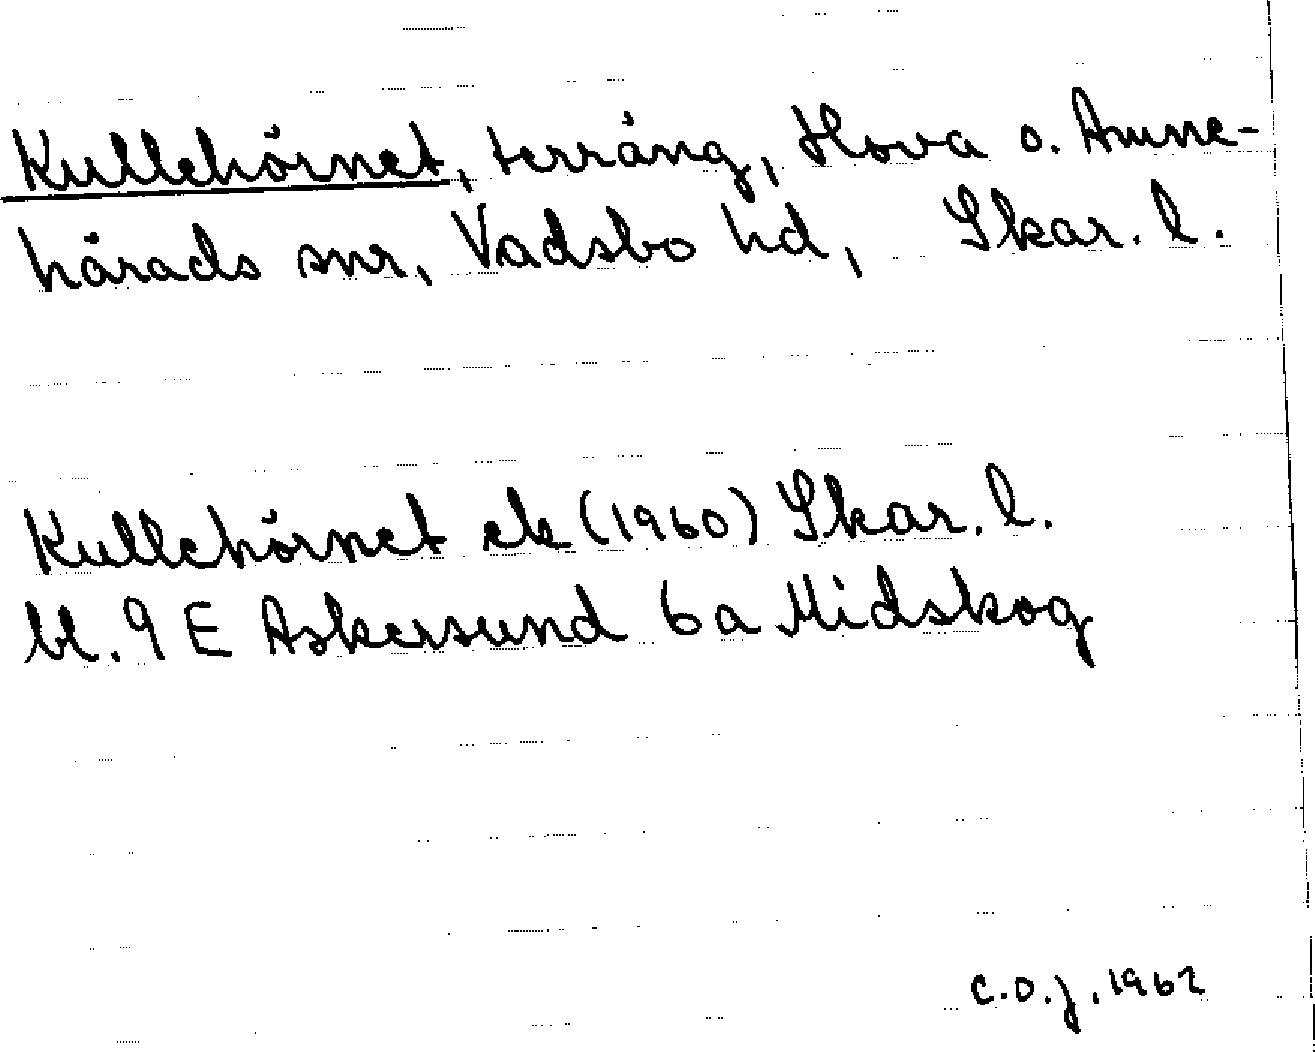 Kullehörnet, terräng, Hova o. Amne-
härads snr, Vadsbo hd, Skar. l.
Kullehörnet ek (1960) Skar. l.
bl. 9 E Askersund 6 a Midskog
C.O.J. 1962